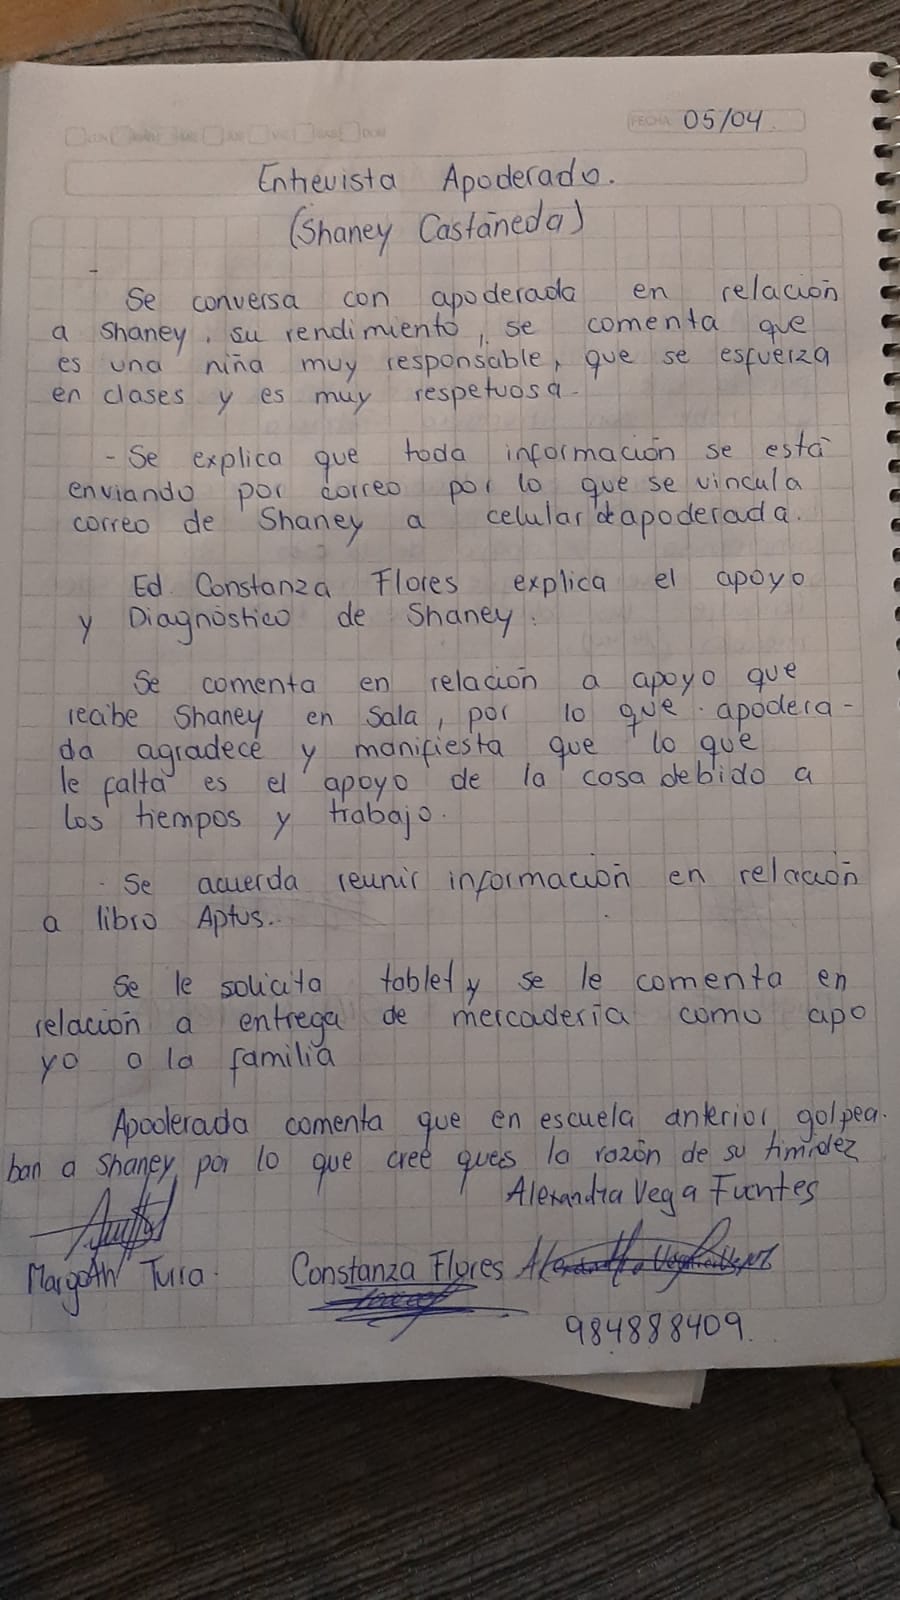 FECHA 05/04
Entrevista Apoderado.
(Shaney Castañeda)
Se conversa con apoderada en relación
a Shaney, su rendimiento, se comenta que
es una niña muy responsable, que se esfuerza
en clases y es muy respetuosa.
- Se explica que toda información se está
enviando por correo por lo que se vincula
correo de Shaney a celular de apoderada.
Ed. Constanza Flores explica el apoyo
y Diagnóstico de Shaney.
Se comenta en relación a apoyo que
recibe Shaney en Sala, por lo que apodera-
da agradece y manifiesta que lo que
le falta es el apoyo de la casa debido a
los tiempos y trabajo.
- Se acuerda reunir información en relación
a libro Aptus..
Se le solicita tablet y se le comenta en
relación a entrega de mercadería como apo
yo a la familia
Apoderada comenta que en escuela anterior golpea-
ban a Shaney, por lo que cree ques la razón de su timidez
Alexandra Vega Fuentes
Margoth Turra.
Constanza Flores
984888409.